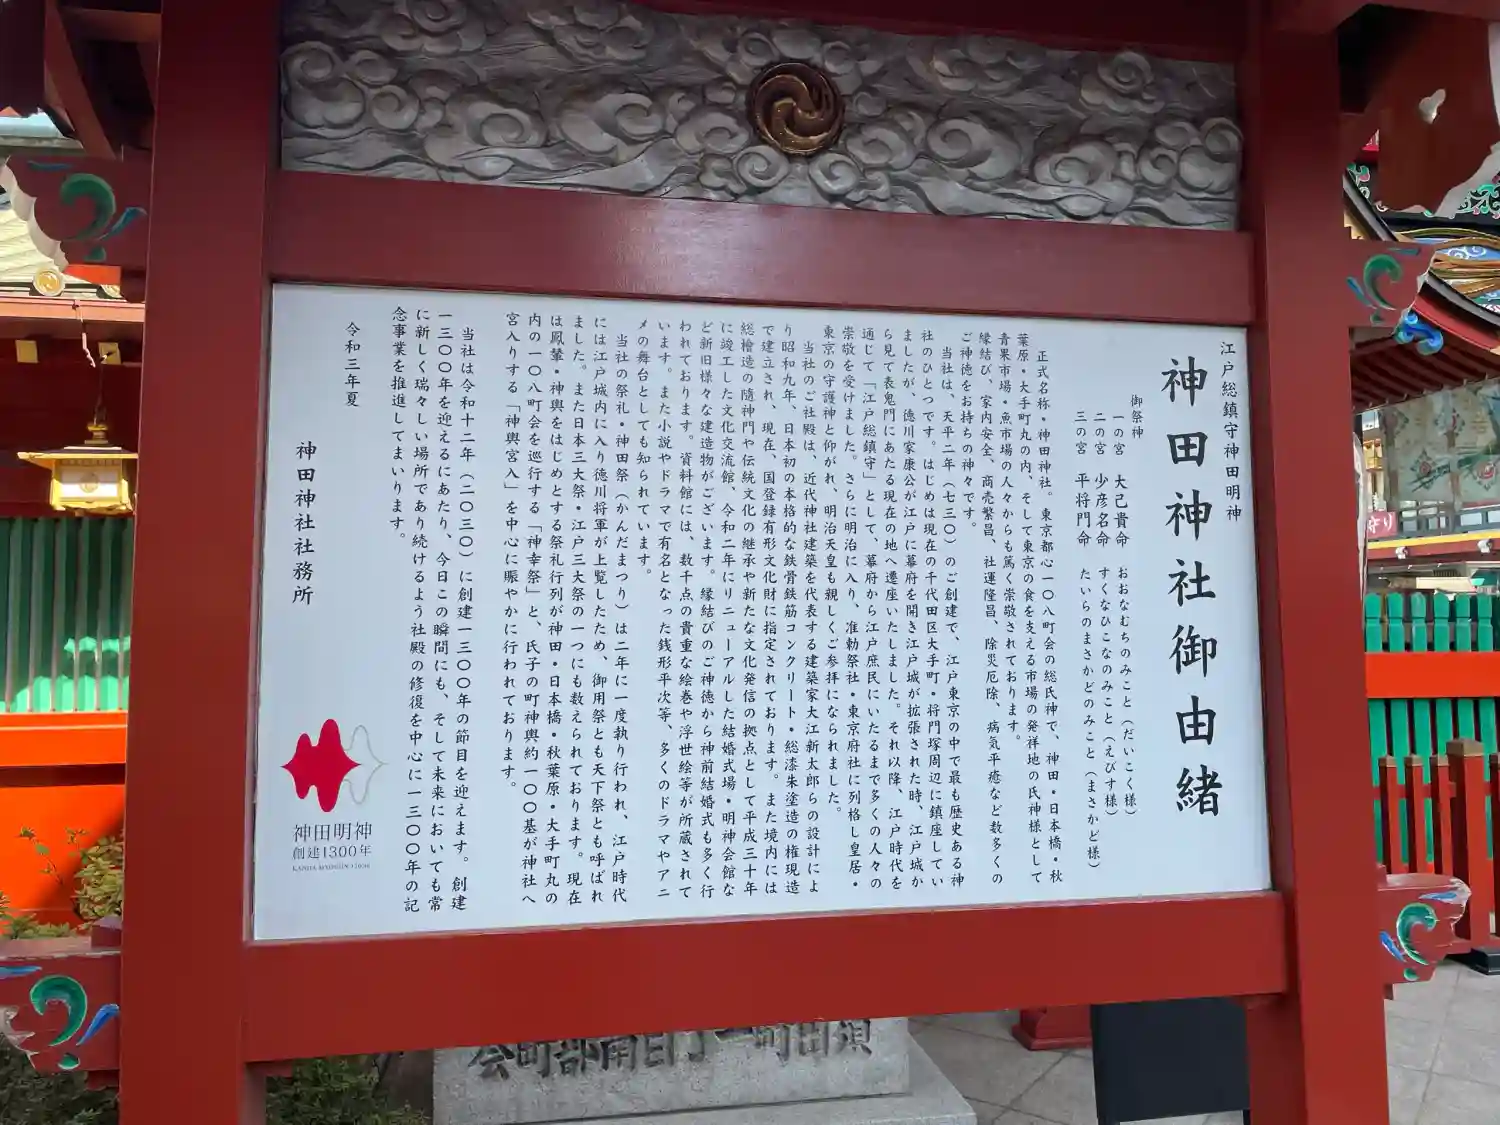 江戸総鎮守神田明神
神田神社御由緒
御祭神
一の宮 大己貴命 おおなむちのみこと（だいこく様）
二の宮 少彦名命 すくなひこなのみこと（えびす様）
三の宮 平将門命 たいらのまさかどのみこと（まさかど様）
正式名称・神田神社。東京都心一〇八町会の総氏神で、神田・日本橋・秋
葉原・大手町丸の内、そして東京の食を支える市場の発祥地の氏神様として
青果市場・魚市場の人々からも篤く崇敬されております。
縁結び、家内安全、商売繁昌、社運隆昌、除災厄除、病気平癒など数多くの
ご神徳をお持ちの神々です。
当社は、天平二年（七三〇）のご創建で、江戸東京の中で最も歴史ある神
社のひとつです。はじめは現在の千代田区大手町・将門塚周辺に鎮座してい
ましたが、徳川家康公が江戸に幕府を開き江戸城が拡張された時、江戸城か
ら見て表鬼門にあたる現在の地へ遷座いたしました。それ以降、江戸時代を
通じて「江戸総鎮守」として、幕府から江戸庶民にいたるまで多くの人々の
崇敬を受けました。さらに明治に入り、准勅祭社・東京府社に列格し皇居・
東京の守護神と仰がれ、明治天皇も親しくご参拝になられました。
当社のご社殿は、近代神社建築を代表する建築家大江新太郎らの設計によ
り昭和九年、日本初の本格的な鉄骨鉄筋コンクリート・総漆朱塗造の権現造
で建立され、現在、国登録有形文化財に指定されております。また境内には
総檜造の隨神門や伝統文化の継承や新たな文化発信の拠点として平成三十年
に竣工した文化交流館、令和二年にリニューアルした結婚式場・明神会館な
ど新旧様々な建造物がございます。縁結びのご神徳から神前結婚式も多く行
われております。資料館には、数千点の貴重な絵巻や浮世絵等が所蔵されて
います。また小説やドラマで有名となった銭形平次等、多くのドラマやアニ
メの舞台としても知られています。
当社の祭礼・神田祭（かんだまつり）は二年に一度執り行われ、江戸時代
には江戸城内に入り徳川将軍が上覧したため、御用祭とも天下祭とも呼ばれ
ました。また日本三大祭・江戸三大祭の一つにも数えられております。現在
は鳳輦・神輿をはじめとする祭礼行列が神田・日本橋・秋葉原・大手町丸の
内の一〇八町会を巡行する「神幸祭」と、氏子の町神輿約一〇〇基が神社へ
宮入りする「神輿宮入」を中心に賑やかに行われております。
当社は令和十二年（二〇三〇）に創建一三〇〇年の節目を迎えます。創建
一三〇〇年を迎えるにあたり、今日この瞬間にも、そして未来においても常
に新しく瑞々しい場所であり続けるよう社殿の修復を中心に一三〇〇年の記
念事業を推進してまいります。
令和三年夏
神田神社社務所
神田明神
創建1300年
須田町一丁目南部町会